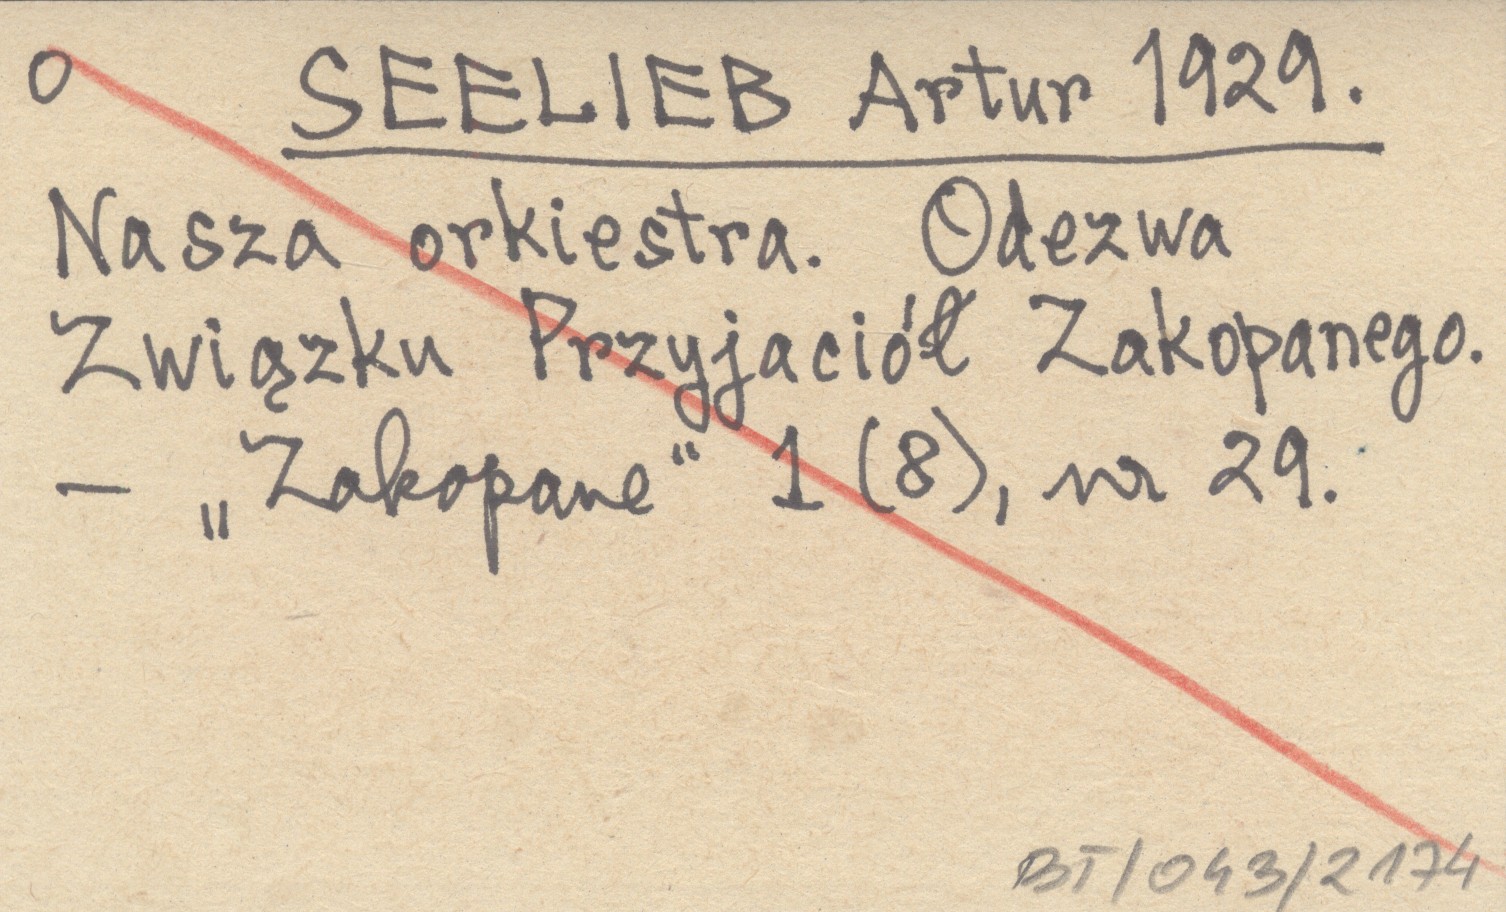 O SEELIEB Artur 1929.
Nasza orkiestra. Odezwa
Związku Przyjaciół Zakopanego.
– „Zakopane“ 1 (8), nr 29.
BT/043/2174